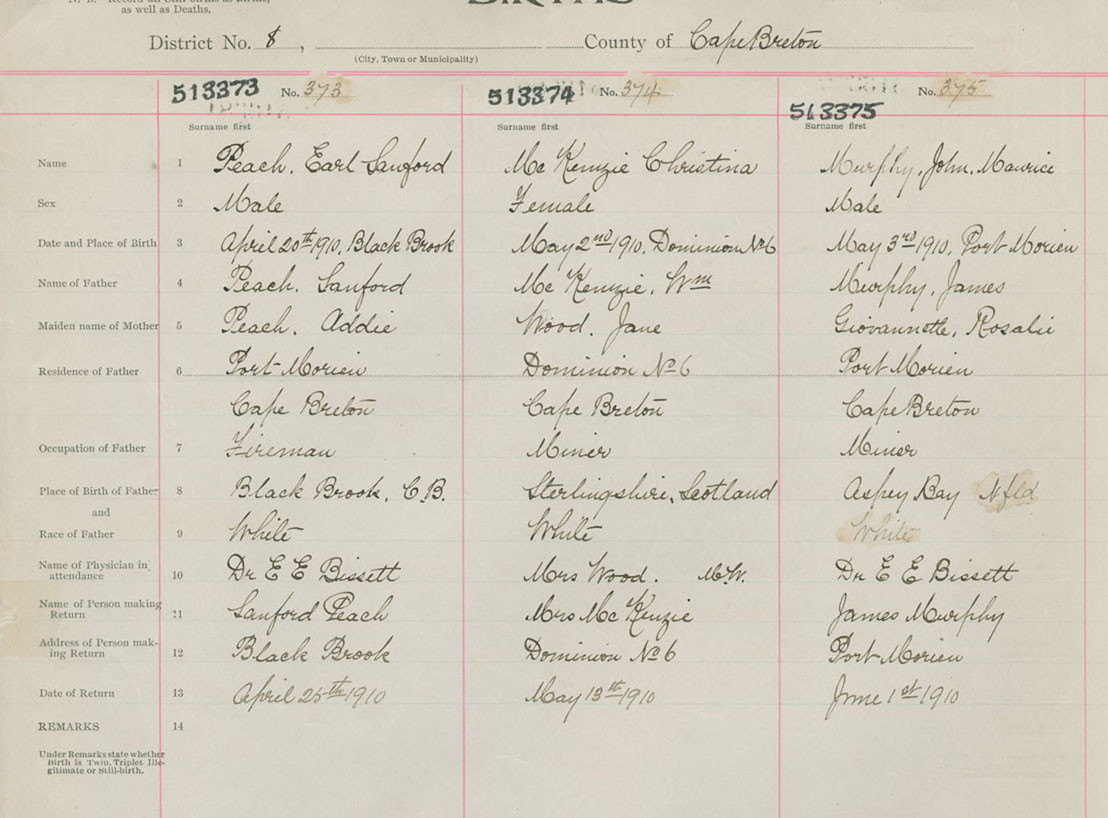 N. B. Record all Still births as Births,
as well as Deaths.
BIRTHS
District No. 8, County of Cape Breton
(City, Town or Municipality)
513373 No. 373 513374 No. 374 513375 No. 375
Surname first Surname first Surname first
Name 1 Peach. Earl Sanford Mc Kenzie Christina Murphy, John. Maurice
Sex 2 Male Female Male
Date and Place of Birth 3 April 20th 1910, Black Brook May 2nd 1910, Dominion No 6 May 3rd 1910, Port Morien
Name of Father 4 Peach. Sanford Mc Kenzie, Wm Murphy, James
Maiden name of Mother 5 Peach. Addie Wood. Jane Giovannette, Rosalie
Residence of Father 6 Port Morien Dominion No 6 Port Morien
Cape Breton Cape Breton Cape Breton
Occupation of Father 7 Fireman Miner Miner
Place of Birth of Father 8 Black Brook, C.B. Sterlingshire, Scotland Aspey Bay Nfld
and
Race of Father 9 White White White
Name of Physician in attendance 10 Dr E E Bissett Mrs Wood. M.W. Dr E E Bissett
Name of Person making Return 11 Sanford Peach Mrs Mc Kenzie James Murphy
Address of Person mak-ing Return 12 Black Brook Dominion No 6 Port Morien
Date of Return 13 April 25th 1910 May 13th 1910 June 1st 1910
REMARKS 14
Under Remarks state whether
Birth is Twin, Triplet Ille-
gitimate or Still-birth.